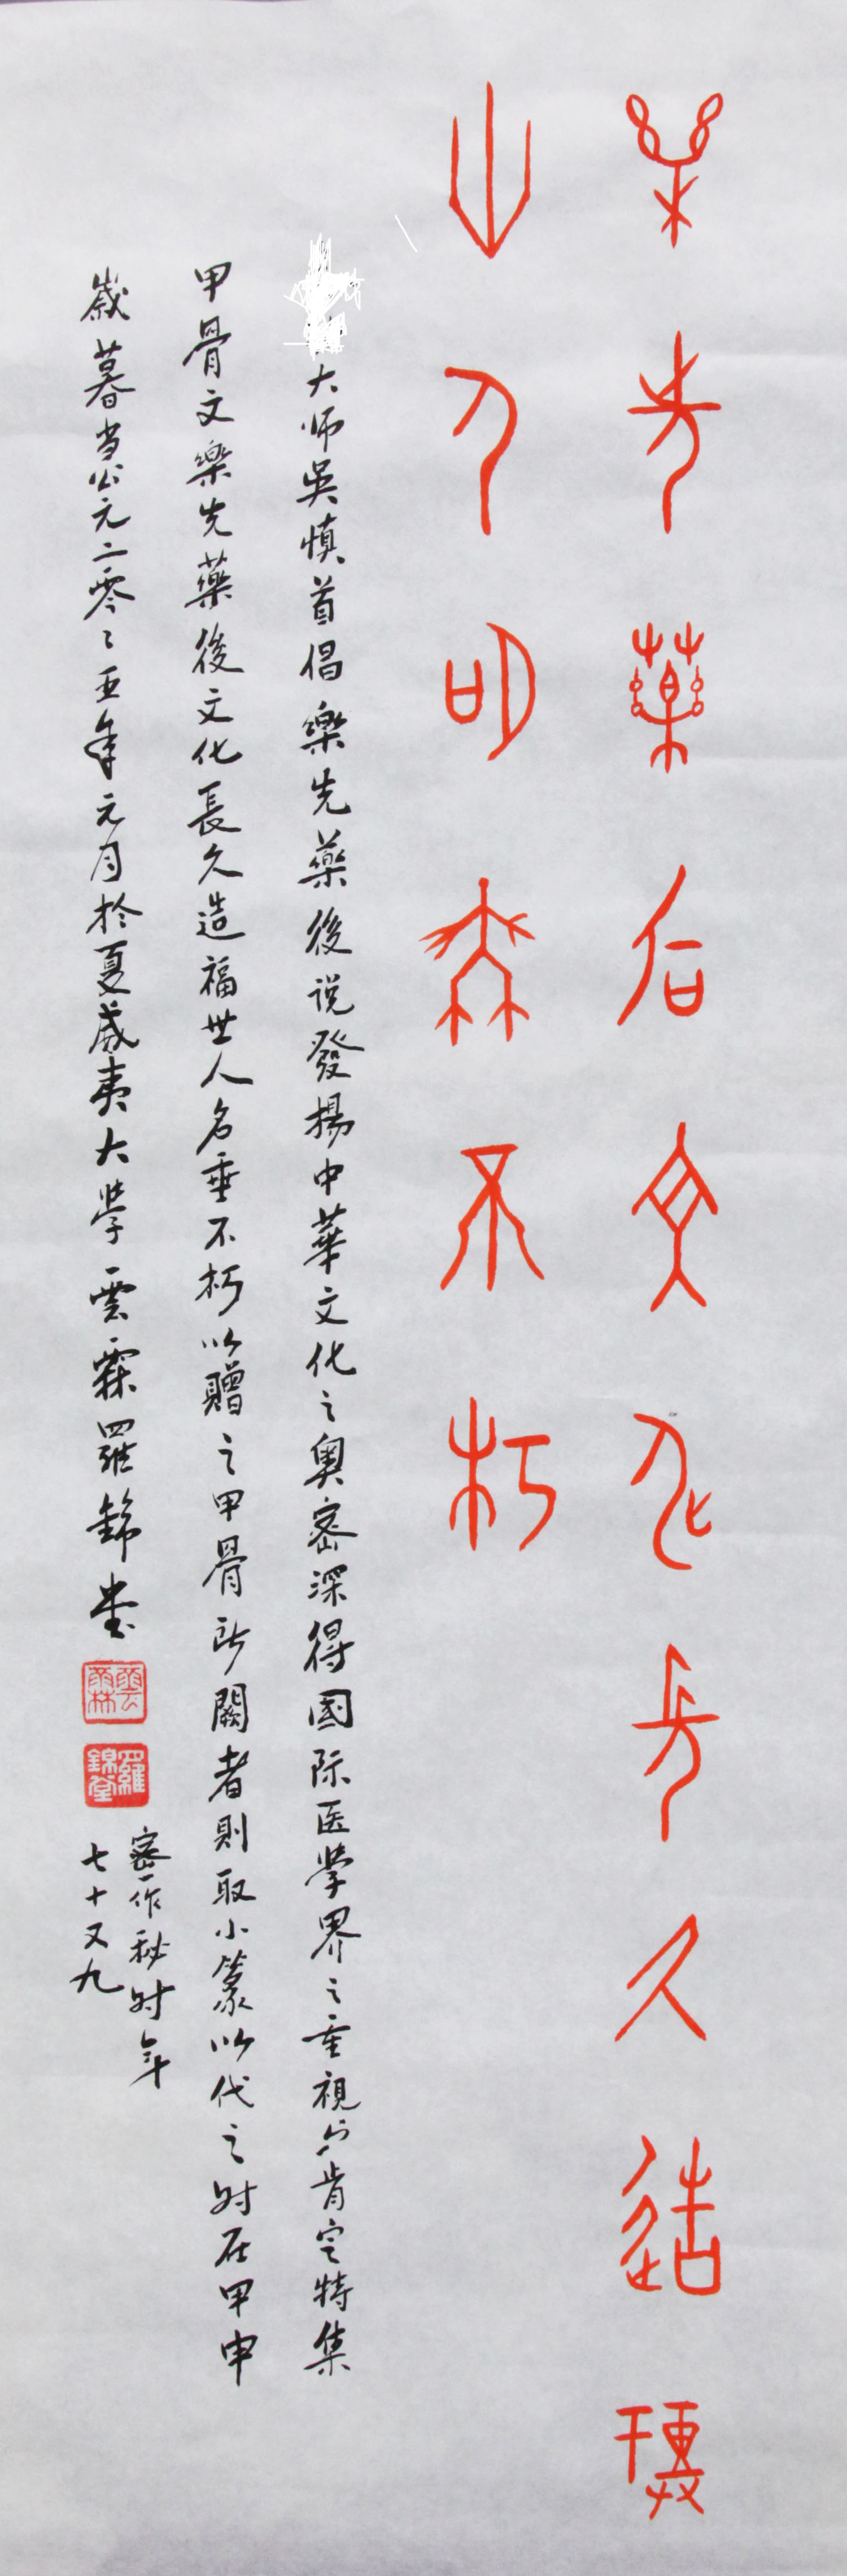 樂先藥後文化長久造福
世人名垂不朽
大师吳慎首倡樂先藥後说發揚中華文化之奧密深得國际医學界之重視与肯定特集
甲骨文樂先藥後文化長久造福世人名垂不朽以贈之甲骨所闕者則取小篆以代之时在甲申
歲暮当公元二零零五年元月於夏威夷大學雲霖羅錦堂
雲霖
羅錦堂
密作秘时年
七十又九